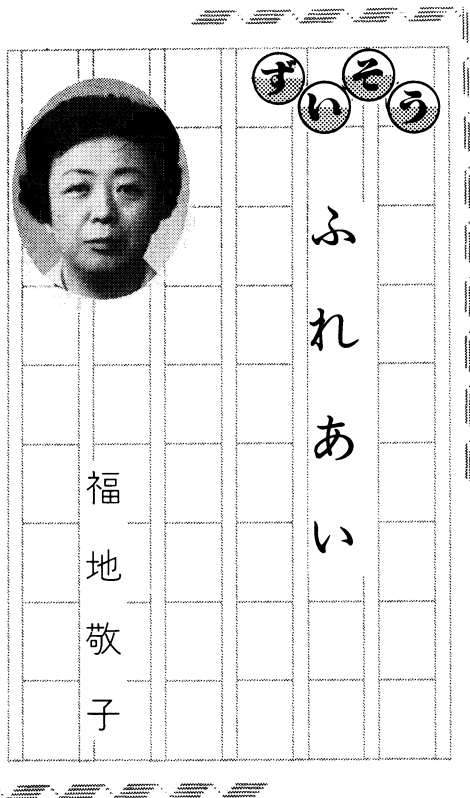 ずいそう
ふれあい
福地敬子